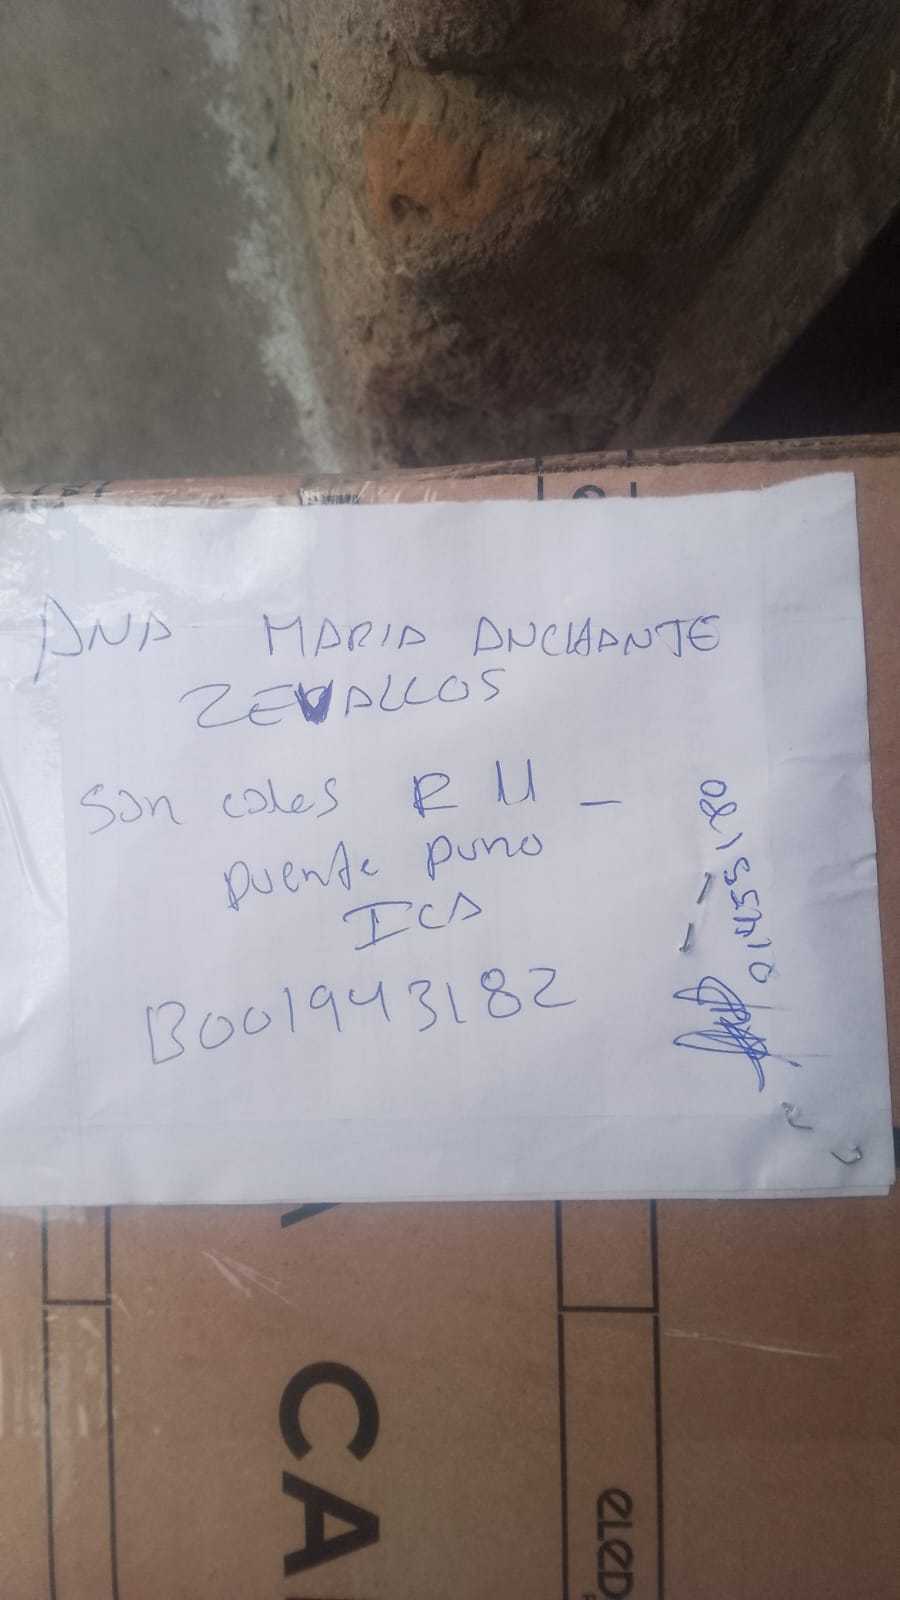 ANA MARIA ANCHANTE
ZEVALLOS
San coles R M -
puente puno
ICA
B001943182
CA
eLED